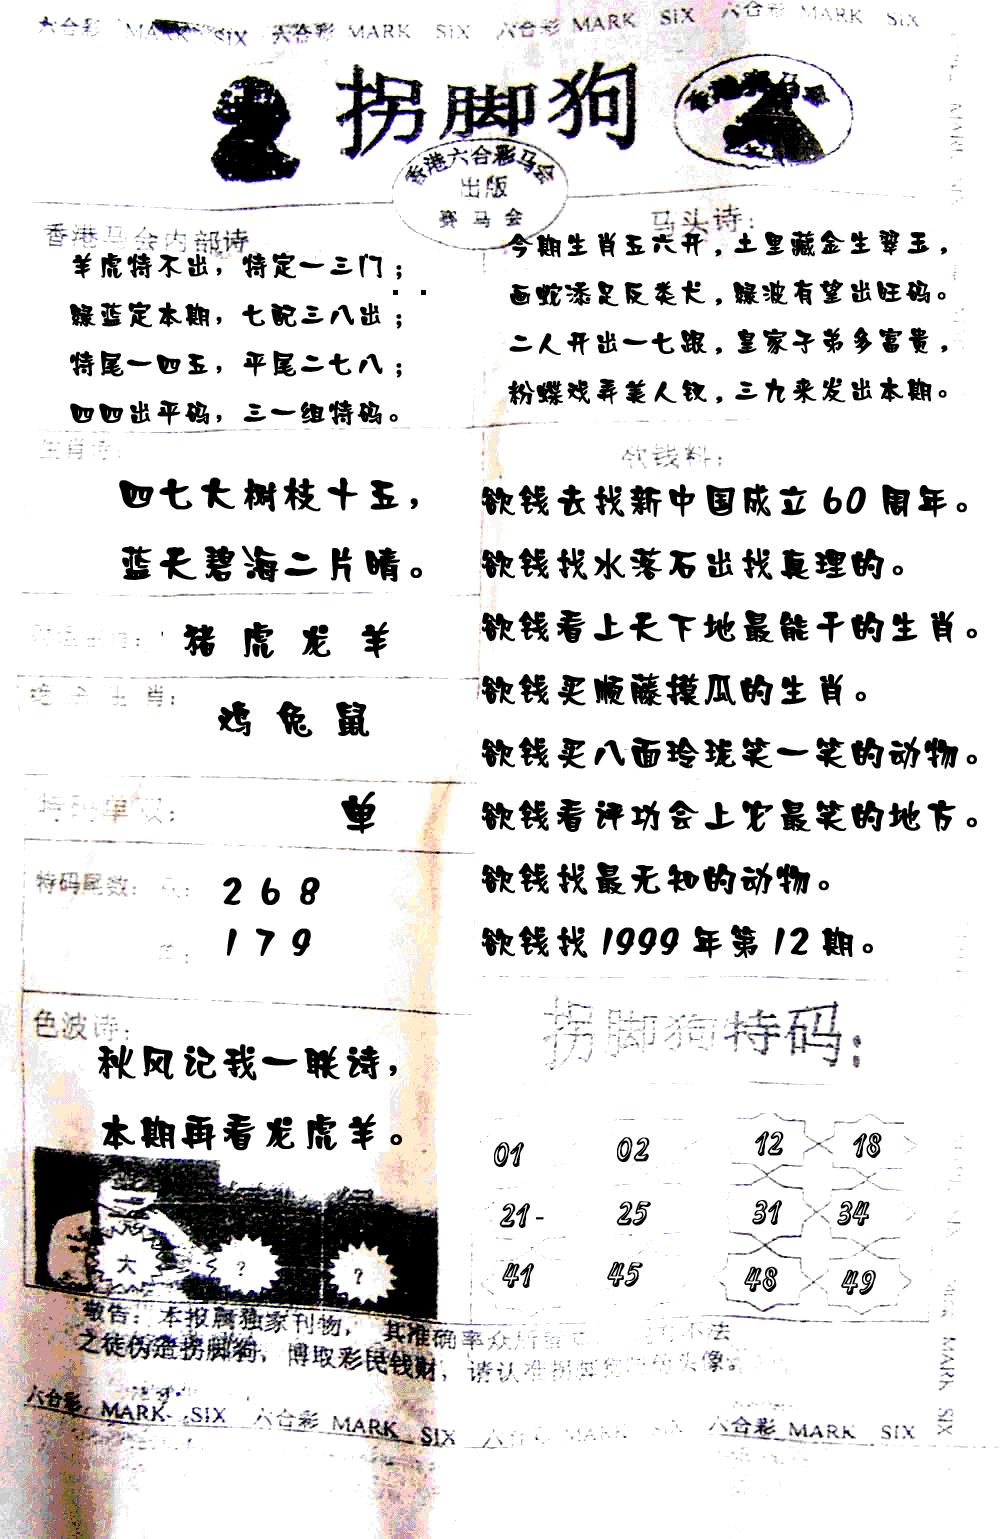 六合彩 MARK SIX 六合彩 MARK SIX 六合彩 MARK SIX 六合彩 MARK SIX
拐脚狗
香港六合彩马会
出版
赛马会
香港马会内部诗
羊虎特不出，特定一三门；
绿蓝定本期，七配三八出；
特尾一四五，平尾二七八；
四四出平码，三一组特码。
马头诗：
今期生肖五六开，土里藏金生翠玉，
画蛇添足反类犬，绿波有望出旺码。
二人开出一七跟，皇家子弟多富贵，
粉蝶戏弄美人钗，三九来发出本期。
生肖诗：
四七大树枝十五，
蓝天碧海二片晴。
猪 虎 龙 羊
绝杀生肖：
鸡 兔 鼠
特码单双：
单
特码尾数：
2 6 8
1 7 9
色波诗：
秋风记我一联诗，
本期再看龙虎羊。
大 ？ ？
欲钱料：
欲钱去找新中国成立 60 周年。
欲钱找水落石出找真理的。
欲钱看上天下地最能干的生肖。
欲钱买顺藤摸瓜的生肖。
欲钱买八面玲珑笑一笑的动物。
欲钱看评功会上农最笑的地方。
欲钱找最无知的动物。
欲钱找 1999 年第 12 期。
拐脚狗特码：
01 02 12 18
21- 25 31 34
41 45 48 49
敬告：本报属独家刊物，其准确率众所 不法
之徒伪造拐脚狗，博取彩民钱财，请认准拐脚狗 头像。
六合彩 MARK SIX 六合彩 MARK SIX 六合彩 MARK SIX 六合彩 MARK SIX
MARK SIX